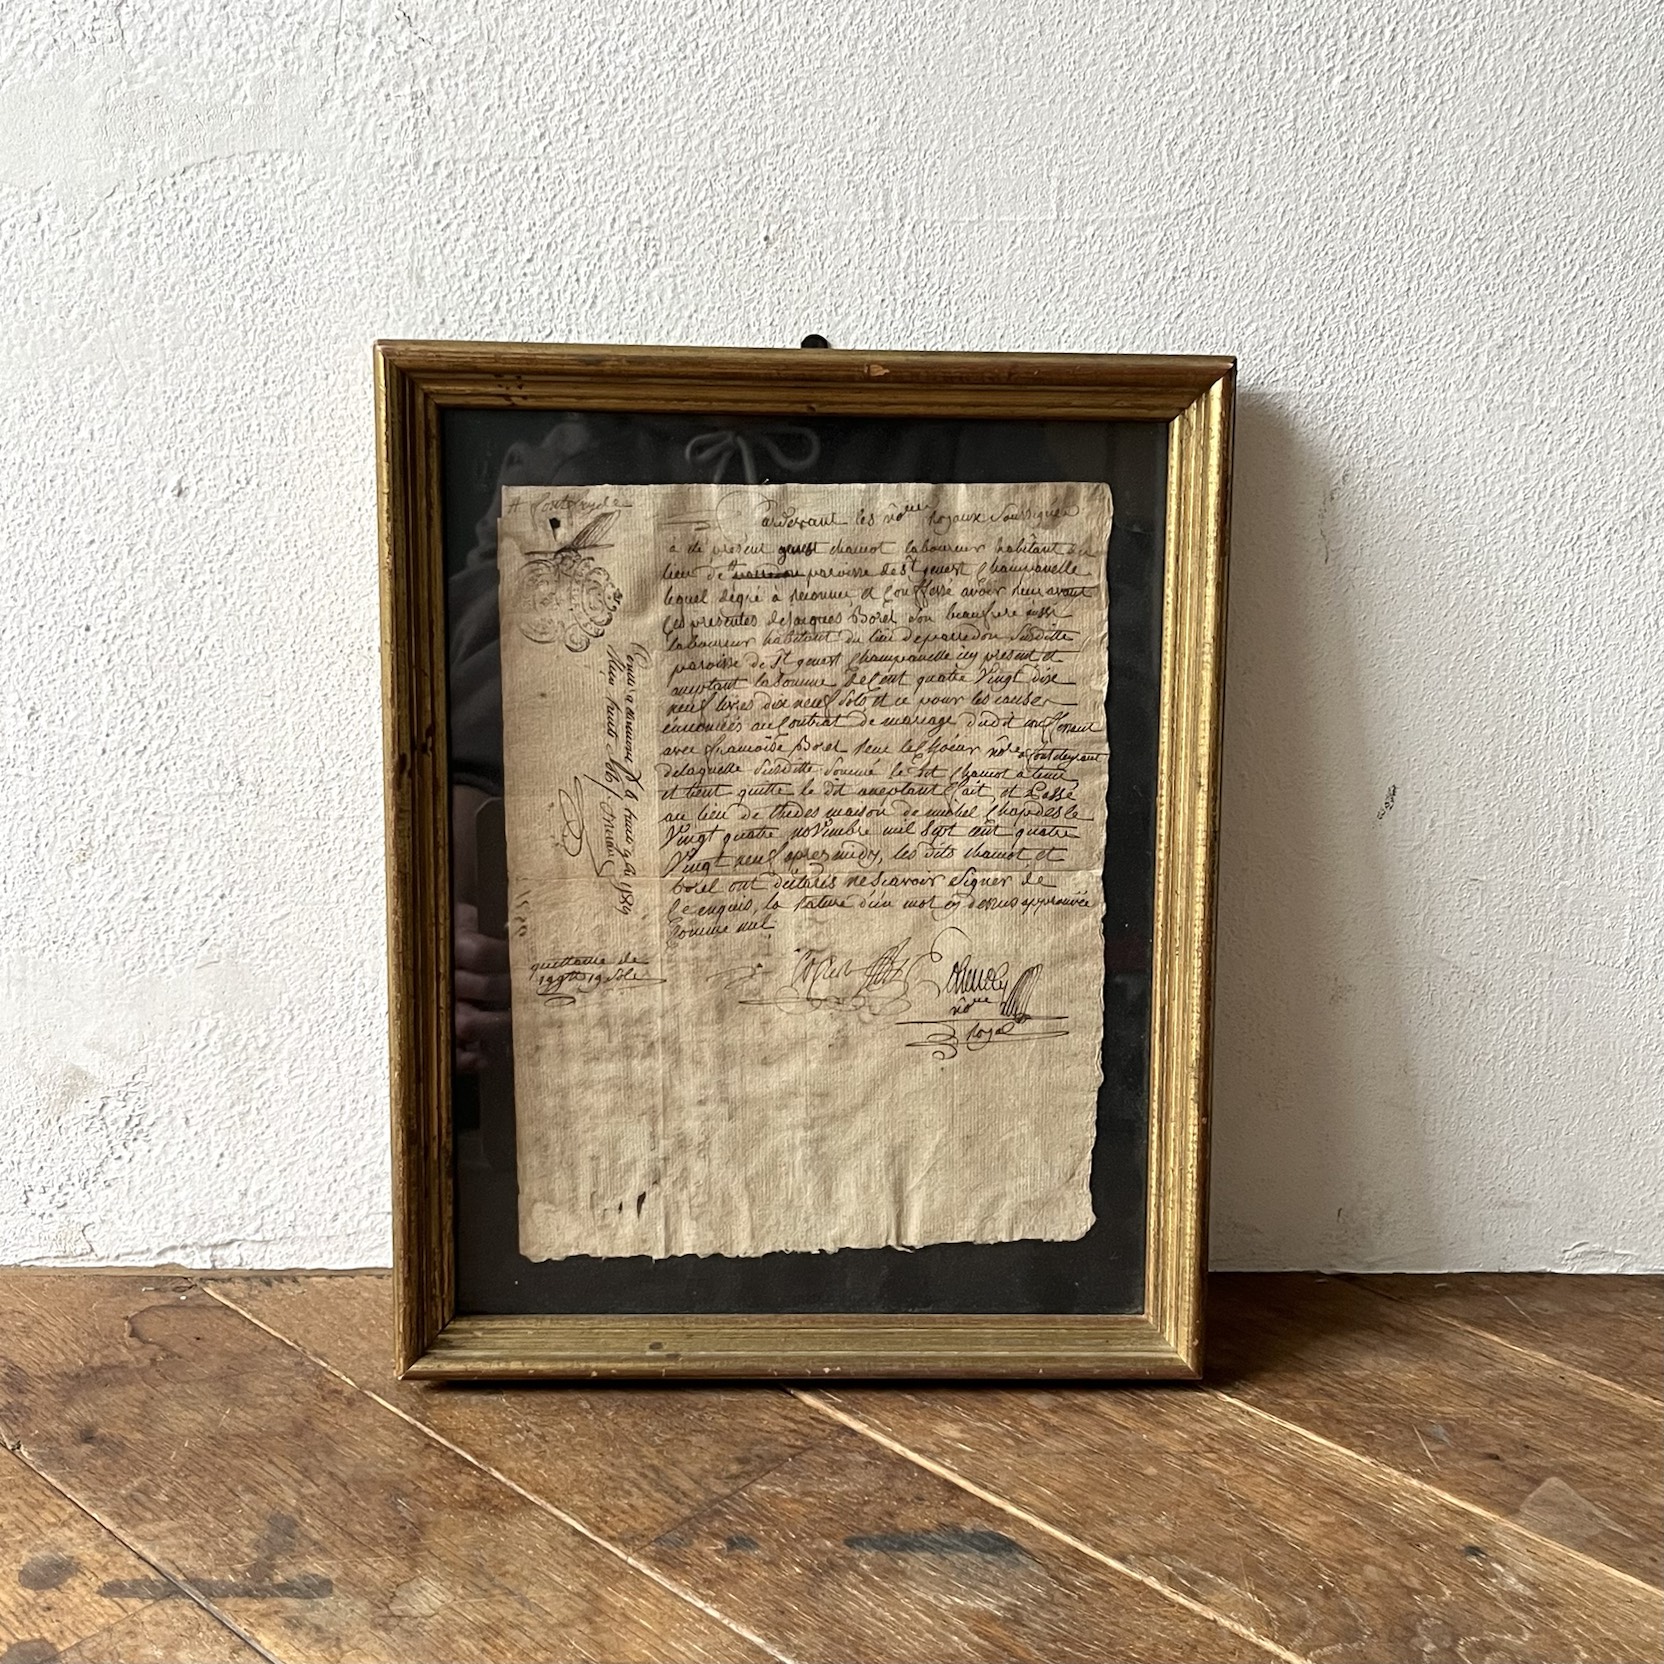 Pardevant les no.res Royaux Soussignés
a été present genest chamot laboureur habitant du
lieu de paroisse de st genest Champanelle
lequel degré a reconnu et Confessé avoir Reçu avant
Ces presentes de Jacques Borel son beaufrere aussi
laboureur habitant du lieu de parredon Susditte
paroisse de st genest Champanelle icy present et
aceptant la Somme de Cent quatre Vingt dix
neuf livres dix neuf Sols et ce pour les causes
ennoncées au Contrat de mariage dudit confessant
avec francoise Borel Recu no.re
de laquelle Susditte Somme le dit Chamot a tenu
et tient quitte le dit aceptant fait et Passé
au lieu de thedes maison de michel Chapdes le
Vingt quatre novembre mil Sept cent quatre
Vingt neuf apres midy, les dits chamot et
Borel ont déclarés ne Scavoir Signer de
Ce enquis, la Rature d'un mot cy dessus approuvée
Comme nul
quittance de
199tt 19 Sols
no.re
Royal